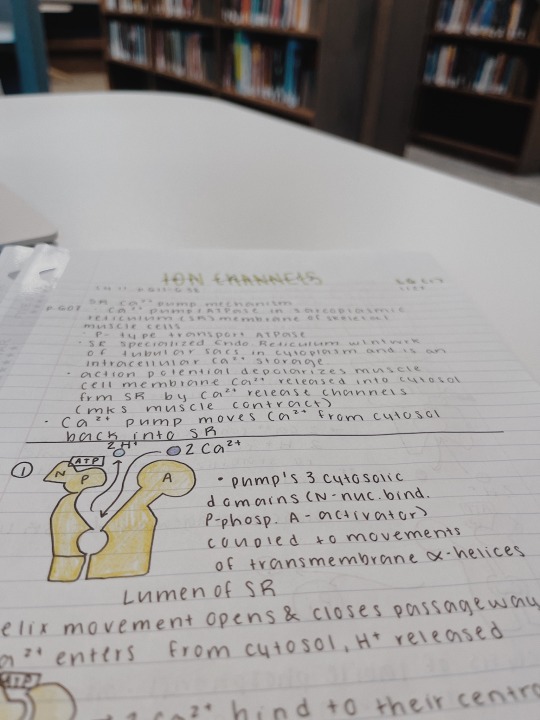 ION CHANNELS
SR Ca²⁺ pump mechanism
Ca²⁺ pump/ATPase in sarcoplasmic
reticulum (SR) membrane of skeletal
muscle cells
· P-type transport ATPase
· SR specialized Endo. Reticulum w/ network
of tubular sacs in cytoplasm and is an
intracellular Ca²⁺ storage
· action potential depolarizes muscle
cell membrane Ca²⁺ released into cytosol
frm SR by Ca²⁺ release channels
(mks muscle contract)
· Ca²⁺ pump moves Ca²⁺ from cytosol
back into SR
① 2 H⁺ 2 Ca²⁺
ATP
N P A
· pump's 3 cytosolic
domains (N-nuc. bind.
P-phosp. A-activator)
coupled to movements
of transmembrane α-helices
Lumen of SR
elix movement opens & closes passageway
a²⁺ enters from cytosol, H⁺ released
ATP
2 Ca²⁺ bind to their centra